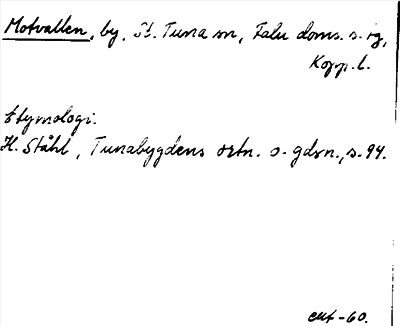 Motvallen, by, St. Tuna sn, Falu doms. s. rg,
Kopp. l.
Etymologi:
H. Ståhl, Tunabygdens ortn. o. gdsn., s. 94.
-60.